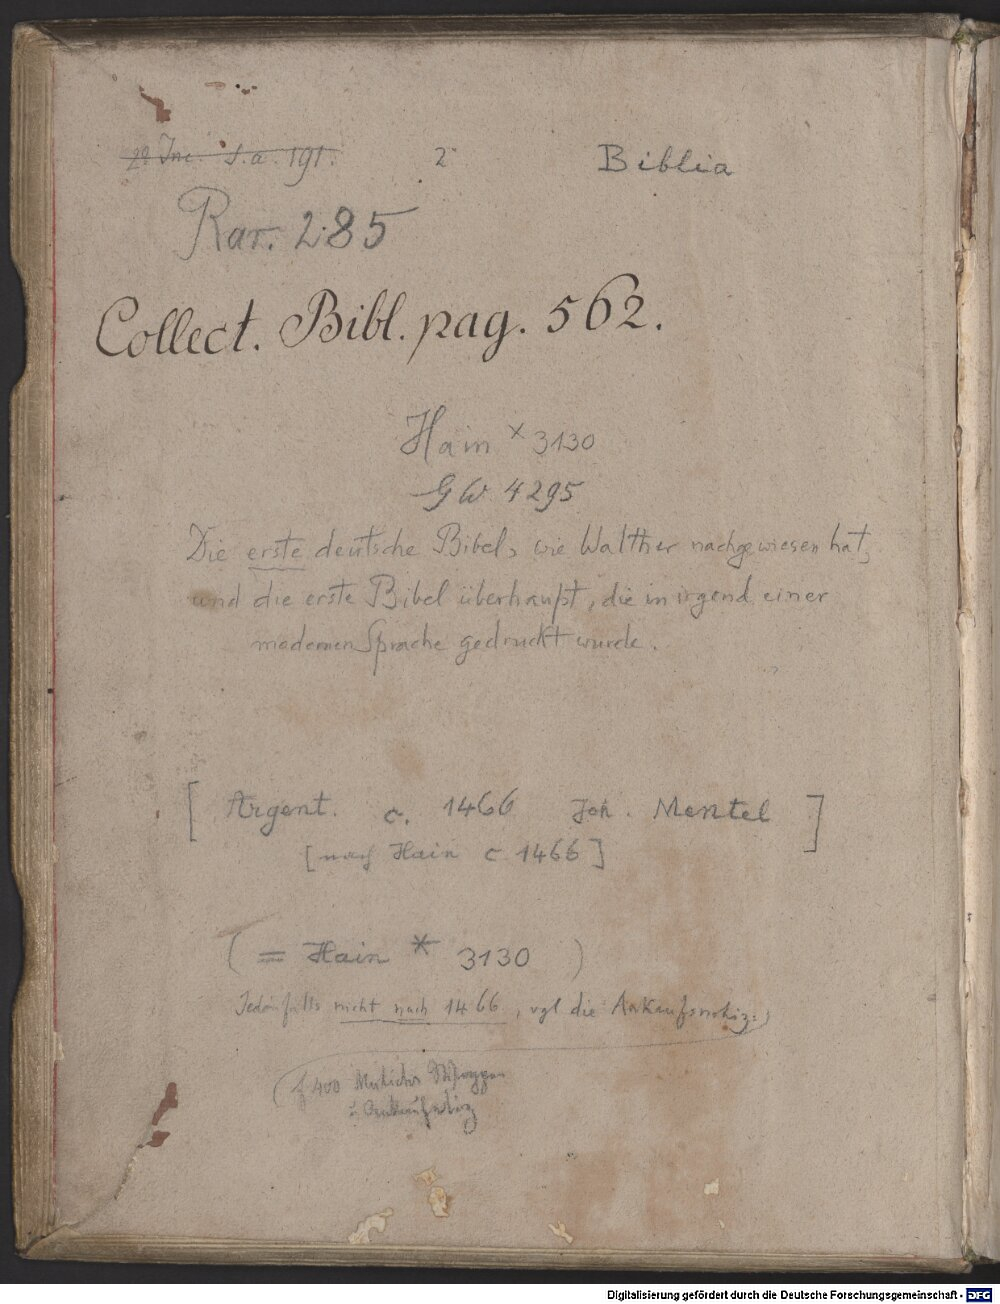 2° Inc. s. a. 191. 2 Biblia
Rar. 285
Collect. Bibl. pag. 562.
Hain × 3130
GW 4295
Die erste deutsche Bibel, wie Walther nachgewiesen hat,
und die erste Bibel überhaupt, die in irgend einer
modernen Sprache gedruckt wurde.
[ Argent. c. 1466 Joh. Mentel ]
[nach Hain c 1466]
( = Hain * 3130 )
Jedenfalls nicht nach 1466, vgl die Ankaufsnotiz:
(f 400 Wappen
u Ankaufsnotiz
Digitalisierung gefördert durch die Deutsche Forschungsgemeinschaft - DFG